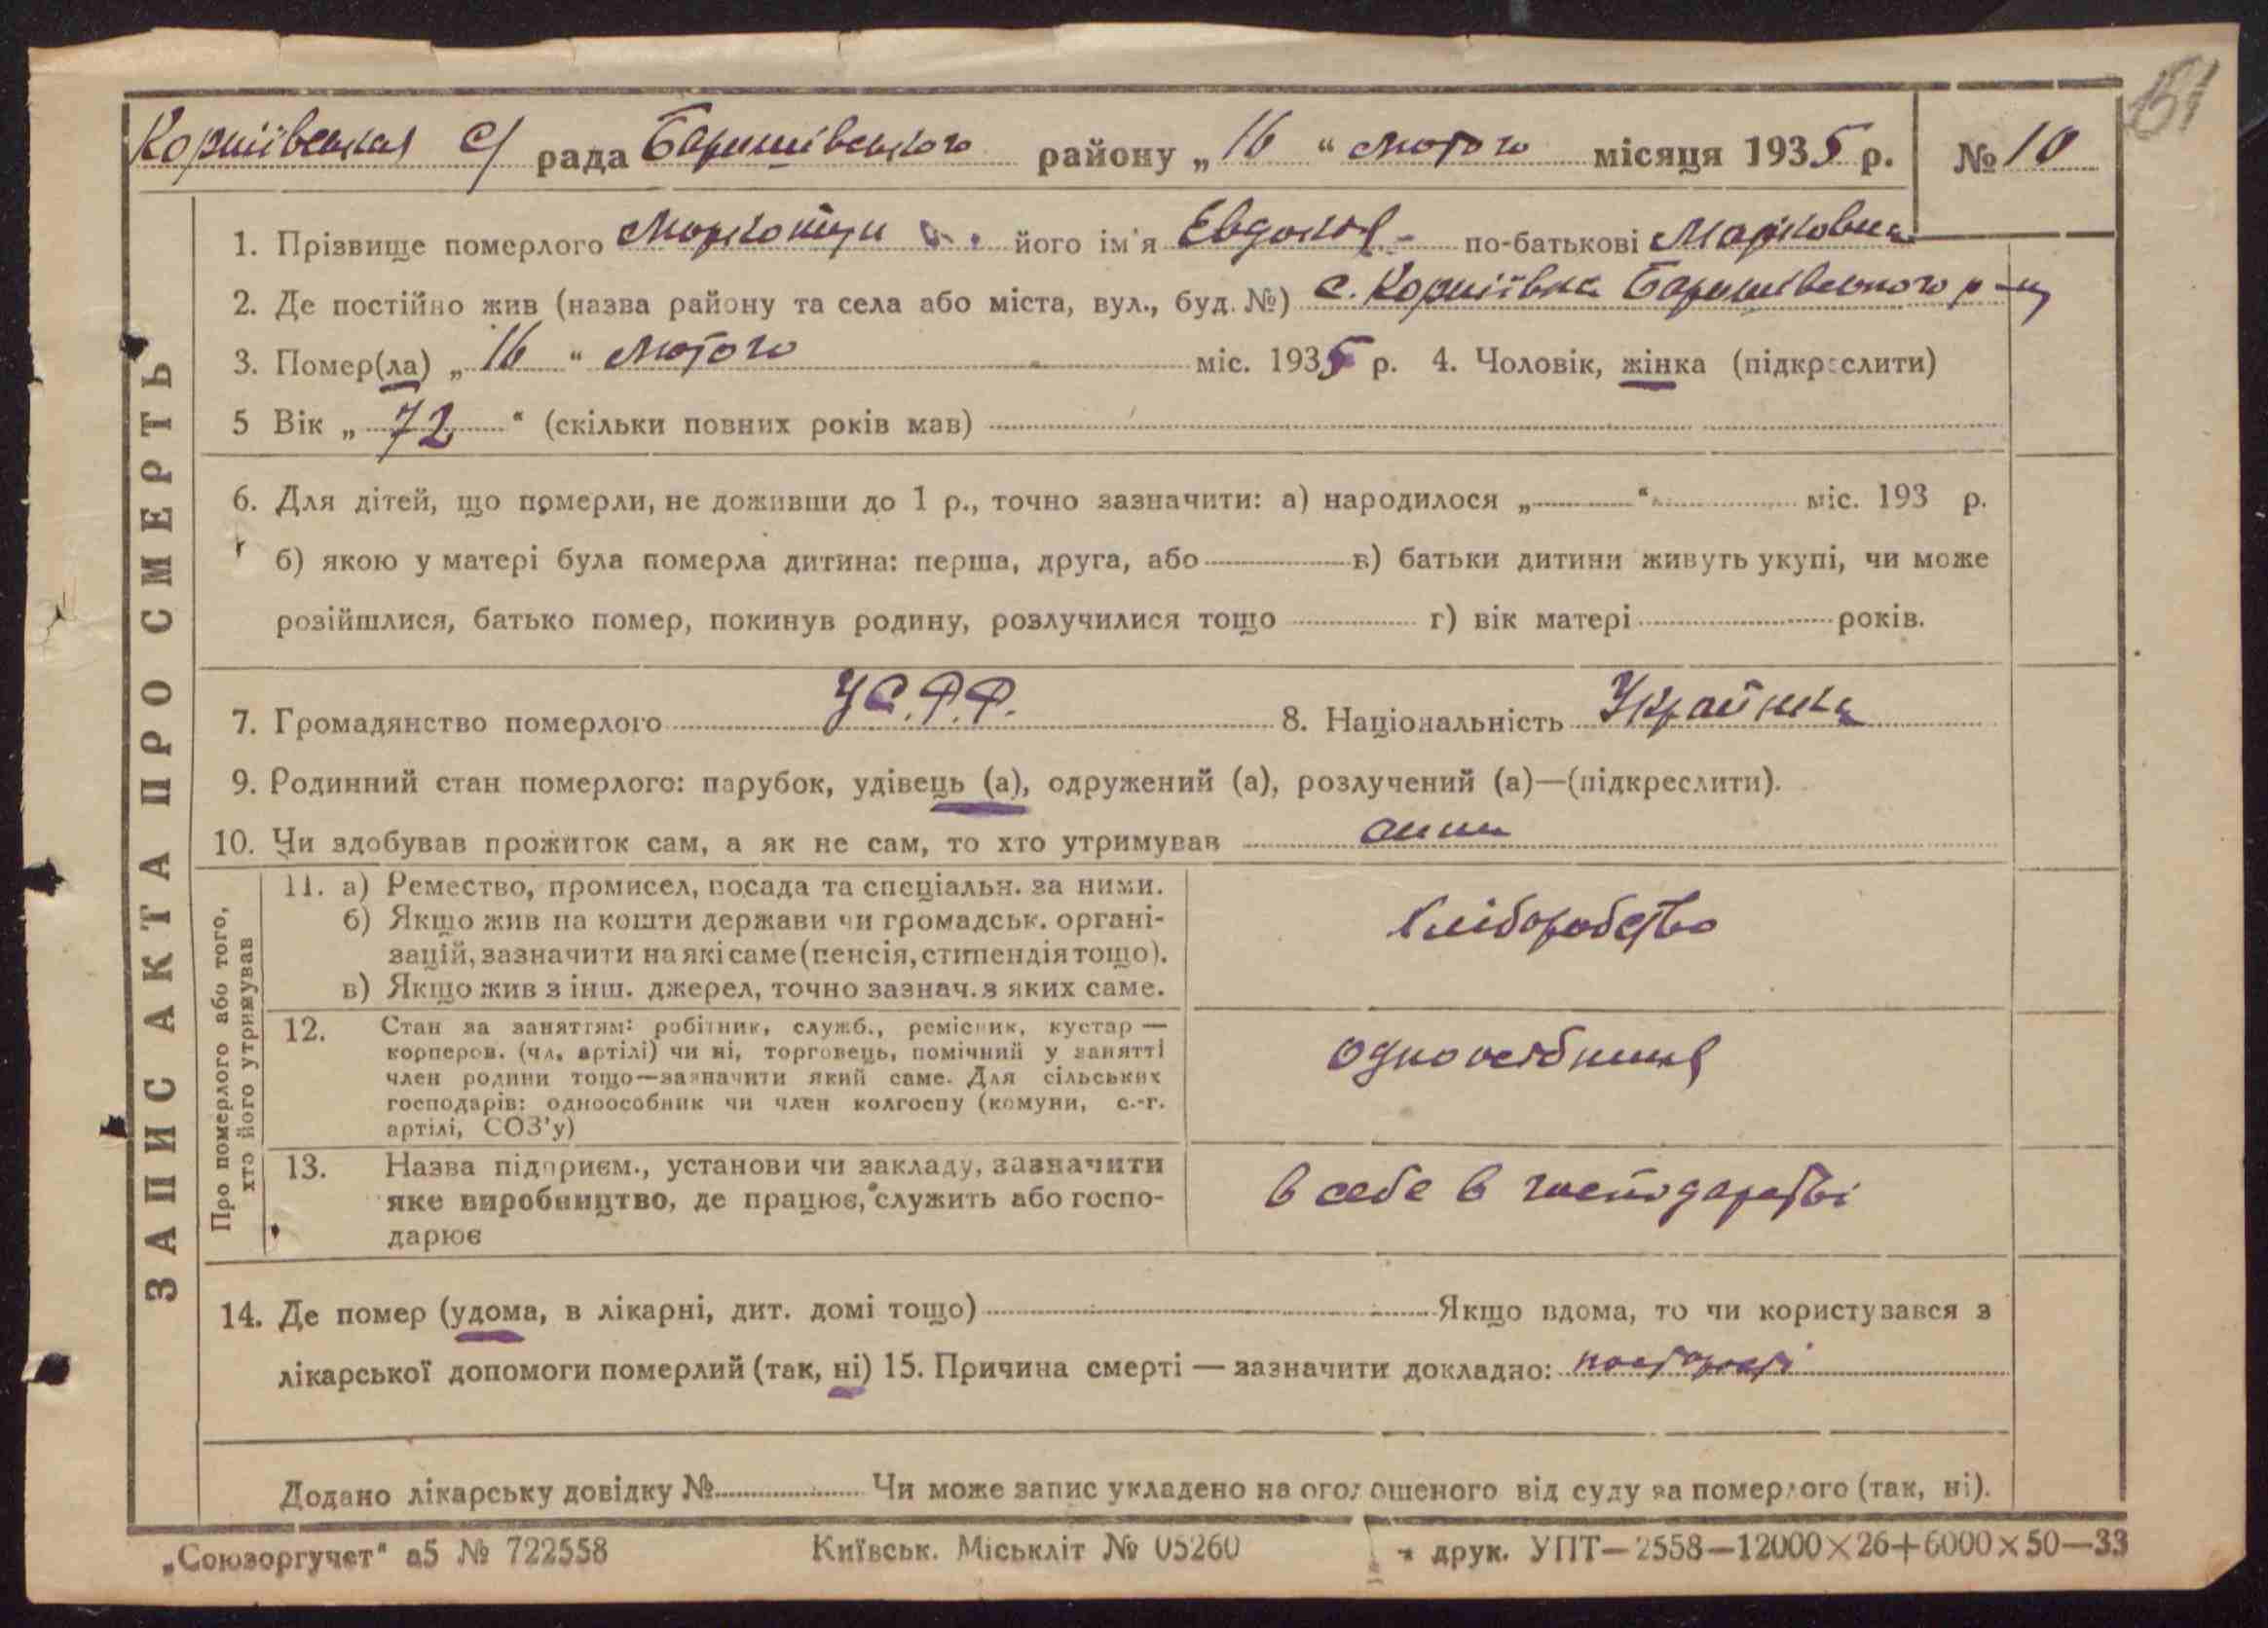 151
Коржиївская С/ рада Баришівського району „ 16 “ лютого місяця 1935 р. № 10
ЗАПИС АКТА ПРО СМЕРТЬ
1. Прізвище померлого його ім'я Евдокія по-батькові Марковна
2. Де постійно жив (назва району та села або міста, вул., буд. №) с. Коржиївка Баришівського р-н
3. Помер(ла) „ 16 “ лютого міс. 1935 р. 4. Чоловік, жінка (підкреслити)
5 Вік „ 72 “ (скільки повних років мав)
6. Для дітей, що померли, не доживши до 1 р., точно зазначити: а) народилося „ “ міс. 193 р.
б) якою у матері була померла дитина: перша, друга, або в) батьки дитини живуть укупі, чи може
розійшлися, батько помер, покинув родину, розлучилися тощо г) вік матері років.
7. Громадянство померлого У.С.Р.Р. 8. Національність Українка
9. Родинний стан померлого: парубок, удівець (а), одружений (а), розлучений (а)—(підкреслити).
10. Чи здобував прожиток сам, а як не сам, то хто утримував
Про померлого або того,
хто його утримував
11. а) Ремество, промисел, посада та спеціальн. за ними.
б) Якщо жив на кошти держави чи громадськ. органі-
зацій, зазначити на які саме (пенсія, стипендія тощо).
в) Якщо жив з інш. джерел, точно зазнач. з яких саме.
хліборобство
12. Стан за заняттям: робітник, служб., ремісник, кустар —
корперов. (чл. артілі) чи ні, торговець, помічний у занятті
член родини тощо—зазначити який саме. Для сільських
господарів: одноособник чи член колгоспу (комуни, с.-г.
артілі, СОЗ'у)
одноосібниця
13. Назва підприєм., установи чи закладу, зазначити
яке виробництво, де працює, служить або госпо-
дарює
в себе в господарстві
14. Де помер (удома, в лікарні, дит. домі тощо) Якщо вдома, то чи користувався з
лікарської допомоги померлий (так, ні) 15. Причина смерті — зазначити докладно: по старості
Додано лікарську довідку № Чи може запис укладено на оголошеного від суду за померлого (так, ні).
„Союзоргучет“ а5 № 722558 Київськ. Міськліт № 05260 друк. УПТ—2558—12000×26+6000×50—33